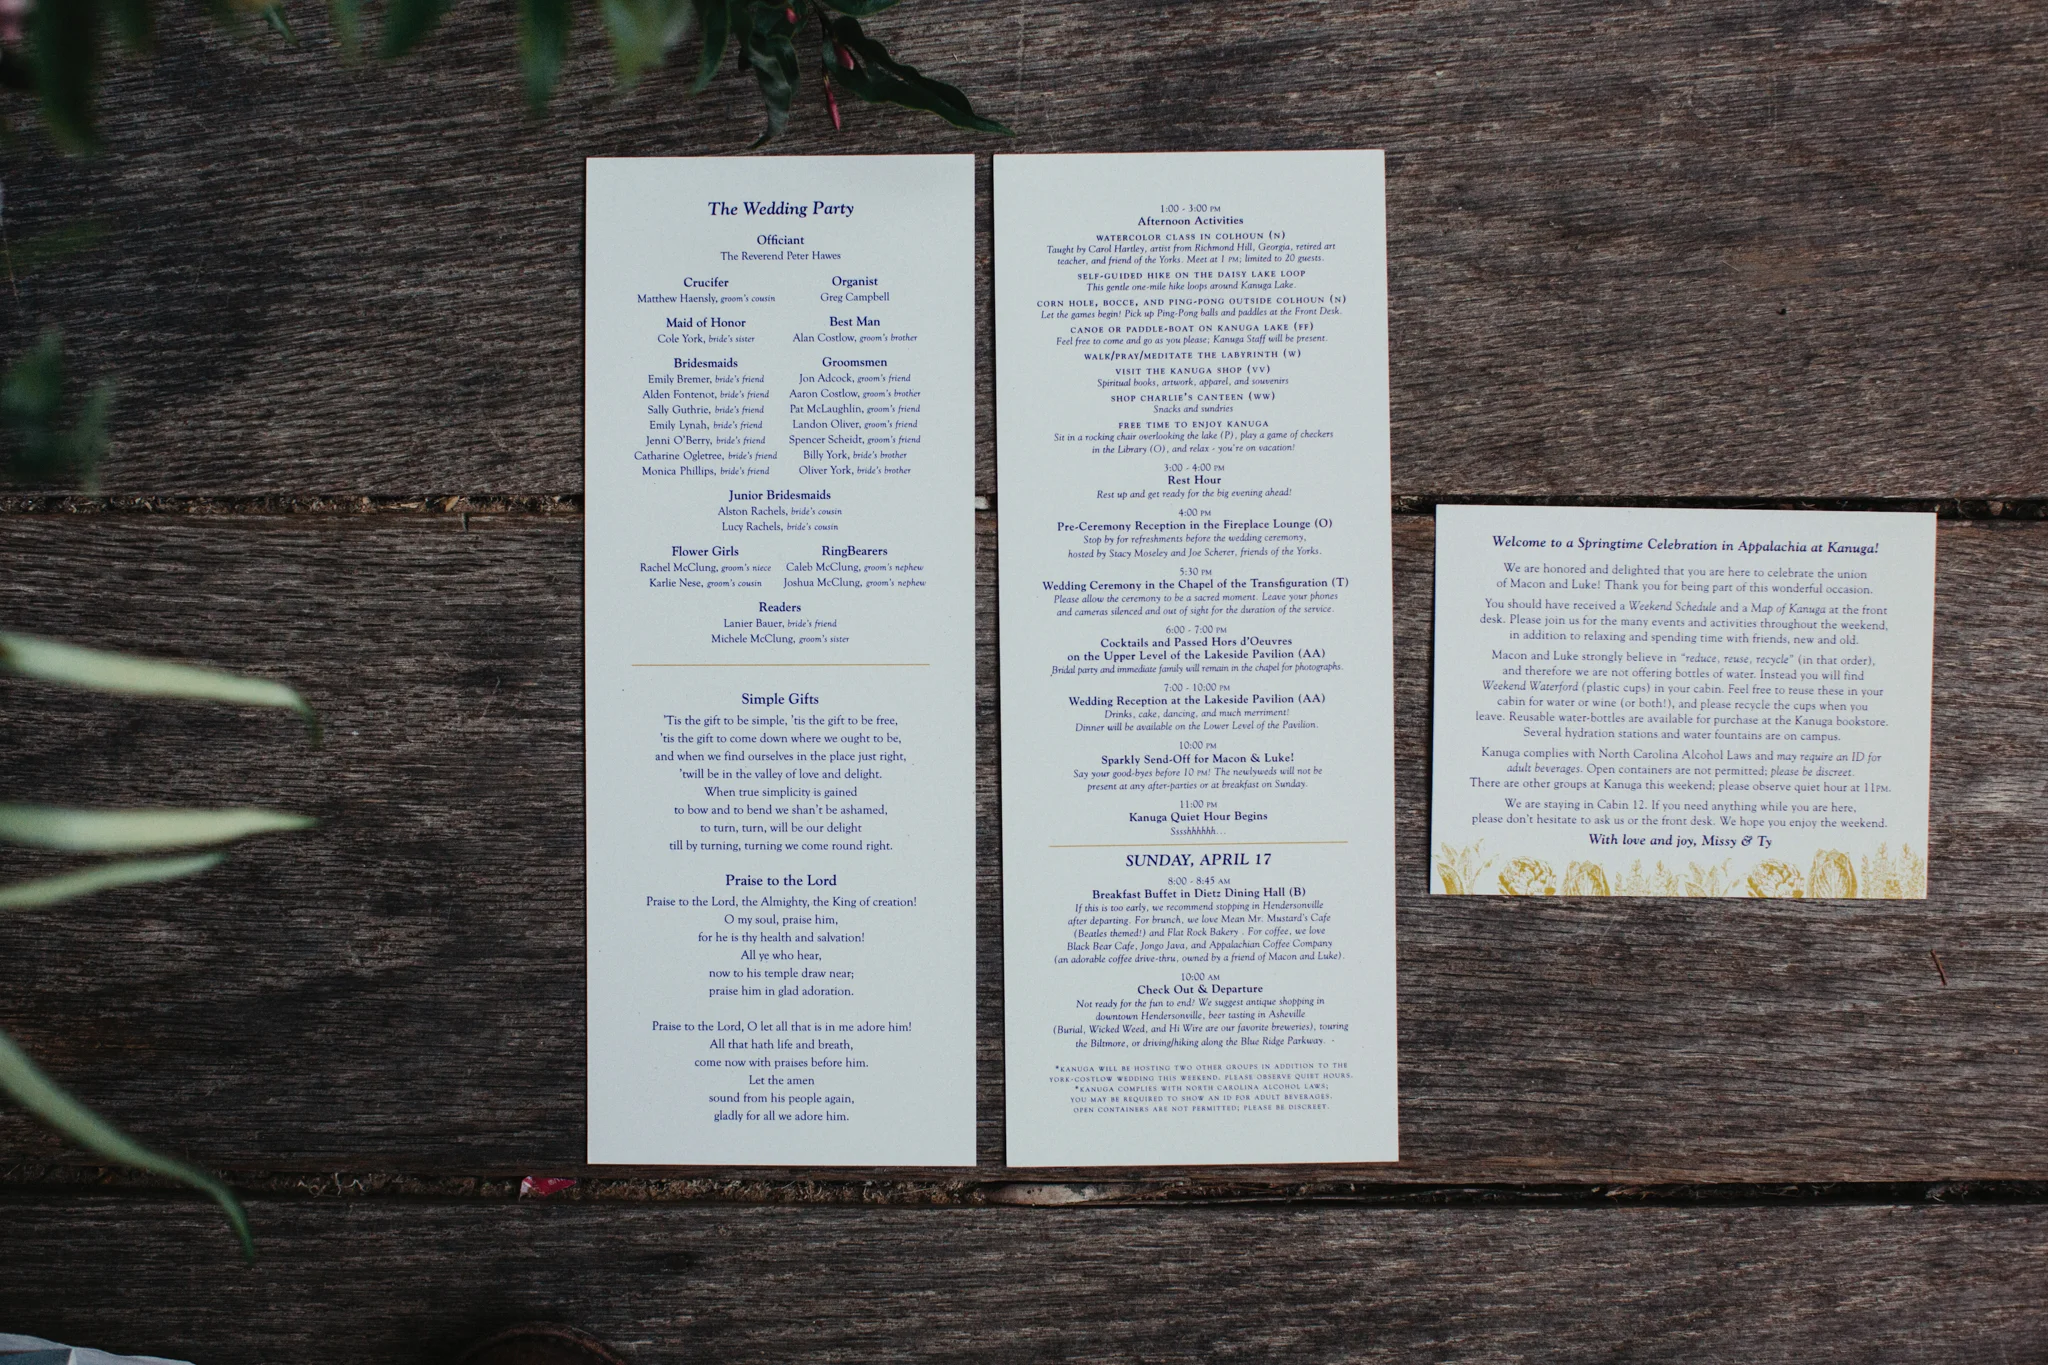 The Wedding Party
Officiant
The Reverend Peter Hawes
Crucifer
Matthew Haensly, groom's cousin
Organist
Greg Campbell
Maid of Honor
Cole York, bride's sister
Best Man
Alan Costlow, groom's brother
Bridesmaids
Emily Bremer, bride's friend
Alden Fontenot, bride's friend
Sally Guthrie, bride's friend
Emily Lynah, bride's friend
Jenni O'Berry, bride's friend
Catharine Ogletree, bride's friend
Monica Phillips, bride's friend
Groomsmen
Jon Adcock, groom's friend
Aaron Costlow, groom's brother
Pat McLaughlin, groom's friend
Landon Oliver, groom's friend
Spencer Scheidt, groom's friend
Billy York, bride's brother
Oliver York, bride's brother
Junior Bridesmaids
Alston Rachels, bride's cousin
Lucy Rachels, bride's cousin
Flower Girls
Rachel McClung, groom's niece
Karlie Nese, groom's cousin
RingBearers
Caleb McClung, groom's nephew
Joshua McClung, groom's nephew
Readers
Lanier Bauer, bride's friend
Michele McClung, groom's sister
Simple Gifts
'Tis the gift to be simple, 'tis the gift to be free,
'tis the gift to come down where we ought to be,
and when we find ourselves in the place just right,
'twill be in the valley of love and delight.
When true simplicity is gained
to bow and to bend we shan't be ashamed,
to turn, turn, will be our delight
till by turning, turning we come round right.
Praise to the Lord
Praise to the Lord, the Almighty, the King of creation!
O my soul, praise him,
for he is thy health and salvation!
All ye who hear,
now to his temple draw near;
praise him in glad adoration.
Praise to the Lord, O let all that is in me adore him!
All that hath life and breath,
come now with praises before him.
Let the amen
sound from his people again,
gladly for all we adore him.
1:00 - 3:00 PM
Afternoon Activities
WATERCOLOR CLASS IN COLHOUN (N)
Taught by Carol Hartley, artist from Richmond Hill, Georgia, retired art
teacher, and friend of the Yorks. Meet at 1 PM; limited to 20 guests.
SELF-GUIDED HIKE ON THE DAISY LAKE LOOP
This gentle one-mile hike loops around Kanuga Lake.
CORN HOLE, BOCCE, AND PING-PONG OUTSIDE COLHOUN (N)
Let the games begin! Pick up Ping-Pong balls and paddles at the Front Desk.
CANOE OR PADDLE-BOAT ON KANUGA LAKE (FF)
Feel free to come and go as you please; Kanuga Staff will be present.
WALK/PRAY/MEDITATE THE LABYRINTH (W)
VISIT THE KANUGA SHOP (VV)
Spiritual books, artwork, apparel, and souvenirs
SHOP CHARLIE'S CANTEEN (WW)
Snacks and sundries
FREE TIME TO ENJOY KANUGA
Sit in a rocking chair overlooking the lake (P), play a game of checkers
in the Library (O), and relax - you're on vacation!
3:00 - 4:00 PM
Rest Hour
Rest up and get ready for the big evening ahead!
4:00 PM
Pre-Ceremony Reception in the Fireplace Lounge (O)
Stop by for refreshments before the wedding ceremony,
hosted by Stacy Moseley and Joe Scherer, friends of the Yorks.
5:30 PM
Wedding Ceremony in the Chapel of the Transfiguration (T)
Please allow the ceremony to be a sacred moment. Leave your phones
and cameras silenced and out of sight for the duration of the service.
6:00 - 7:00 PM
Cocktails and Passed Hors d'Oeuvres
on the Upper Level of the Lakeside Pavilion (AA)
Bridal party and immediate family will remain in the chapel for photographs.
7:00 - 10:00 PM
Wedding Reception at the Lakeside Pavilion (AA)
Drinks, cake, dancing, and much merriment!
Dinner will be available on the Lower Level of the Pavilion.
10:00 PM
Sparkly Send-Off for Macon & Luke!
Say your good-byes before 10 PM! The newlyweds will not be
present at any after-parties or at breakfast on Sunday.
11:00 PM
Kanuga Quiet Hour Begins
Sssshhhhhh...
SUNDAY, APRIL 17
8:00 - 8:45 AM
Breakfast Buffet in Dietz Dining Hall (B)
If this is too early, we recommend stopping in Hendersonville
after departing. For brunch, we love Mean Mr. Mustard's Cafe
(Beatles themed!) and Flat Rock Bakery . For coffee, we love
Black Bear Cafe, Jongo Java, and Appalachian Coffee Company
(an adorable coffee drive-thru, owned by a friend of Macon and Luke).
10:00 AM
Check Out & Departure
Not ready for the fun to end? We suggest antique shopping in
downtown Hendersonville, beer tasting in Asheville
(Burial, Wicked Weed, and Hi Wire are our favorite breweries), touring
the Biltmore, or driving/hiking along the Blue Ridge Parkway. -
*KANUGA WILL BE HOSTING TWO OTHER GROUPS IN ADDITION TO THE
YORK-COSTLOW WEDDING THIS WEEKEND. PLEASE OBSERVE QUIET HOURS.
*KANUGA COMPLIES WITH NORTH CAROLINA ALCOHOL LAWS;
YOU MAY BE REQUIRED TO SHOW AN ID FOR ADULT BEVERAGES.
OPEN CONTAINERS ARE NOT PERMITTED; PLEASE BE DISCREET.
Welcome to a Springtime Celebration in Appalachia at Kanuga!
We are honored and delighted that you are here to celebrate the union
of Macon and Luke! Thank you for being part of this wonderful occasion.
You should have received a Weekend Schedule and a Map of Kanuga at the front
desk. Please join us for the many events and activities throughout the weekend,
in addition to relaxing and spending time with friends, new and old.
Macon and Luke strongly believe in "reduce, reuse, recycle" (in that order),
and therefore we are not offering bottles of water. Instead you will find
Weekend Waterford (plastic cups) in your cabin. Feel free to reuse these in your
cabin for water or wine (or both!), and please recycle the cups when you
leave. Reusable water-bottles are available for purchase at the Kanuga bookstore.
Several hydration stations and water fountains are on campus.
Kanuga complies with North Carolina Alcohol Laws and may require an ID for
adult beverages. Open containers are not permitted; please be discreet.
There are other groups at Kanuga this weekend; please observe quiet hour at 11PM.
We are staying in Cabin 12. If you need anything while you are here,
please don't hesitate to ask us or the front desk. We hope you enjoy the weekend.
With love and joy, Missy & Ty